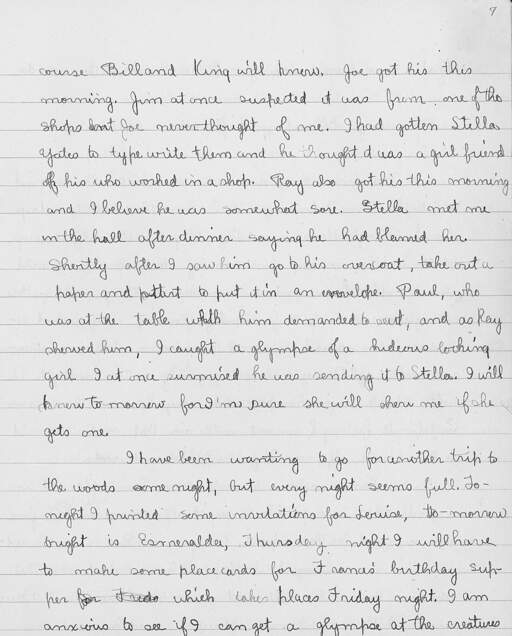 9
course Bill and King will know. Joe got his this
morning. Jim at once suspected it was from one of the
shops but Joe never thought of me. I had gotten Stella
Yates to type write them and he thought it was a girl friend
of his who worked in a shop. Ray also got his this morning
and I believe he was somewhat sore. Stella met me
in the hall after dinner saying he had blamed her.
Shortly after I saw him go to his overcoat, take out a
paper and start to put it in an envelope. Paul, who
was at the table with him demanded to see it, and as Ray
showed him, I caught a glympse of a hideous looking
girl I at once surmised he was sending it to Stella. I will
know to morrow for I'm sure she will show me if she
gets one.
I have been wanting to go for another trip to
the woods some night, but every night seems full. To-
night I printed some invitations for Louise, to-morrow
night is Esmeralda, Thursday night I will have
to make some place cards for Frances' birthday sup-
per which takes places Friday night. I am
anxious to see if I can get a glympse at the creatures